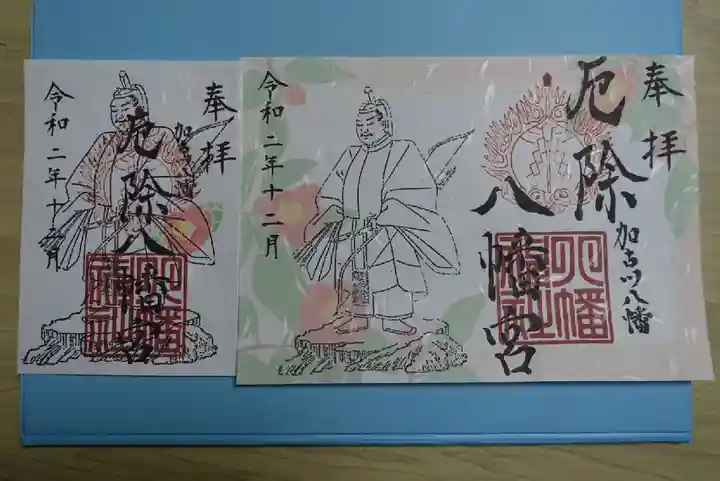 奉拝
加古川
厄除八幡宮
令和二年十二月
奉拝
厄除
八幡宮
加古川八幡
八幡
令和二年十二月